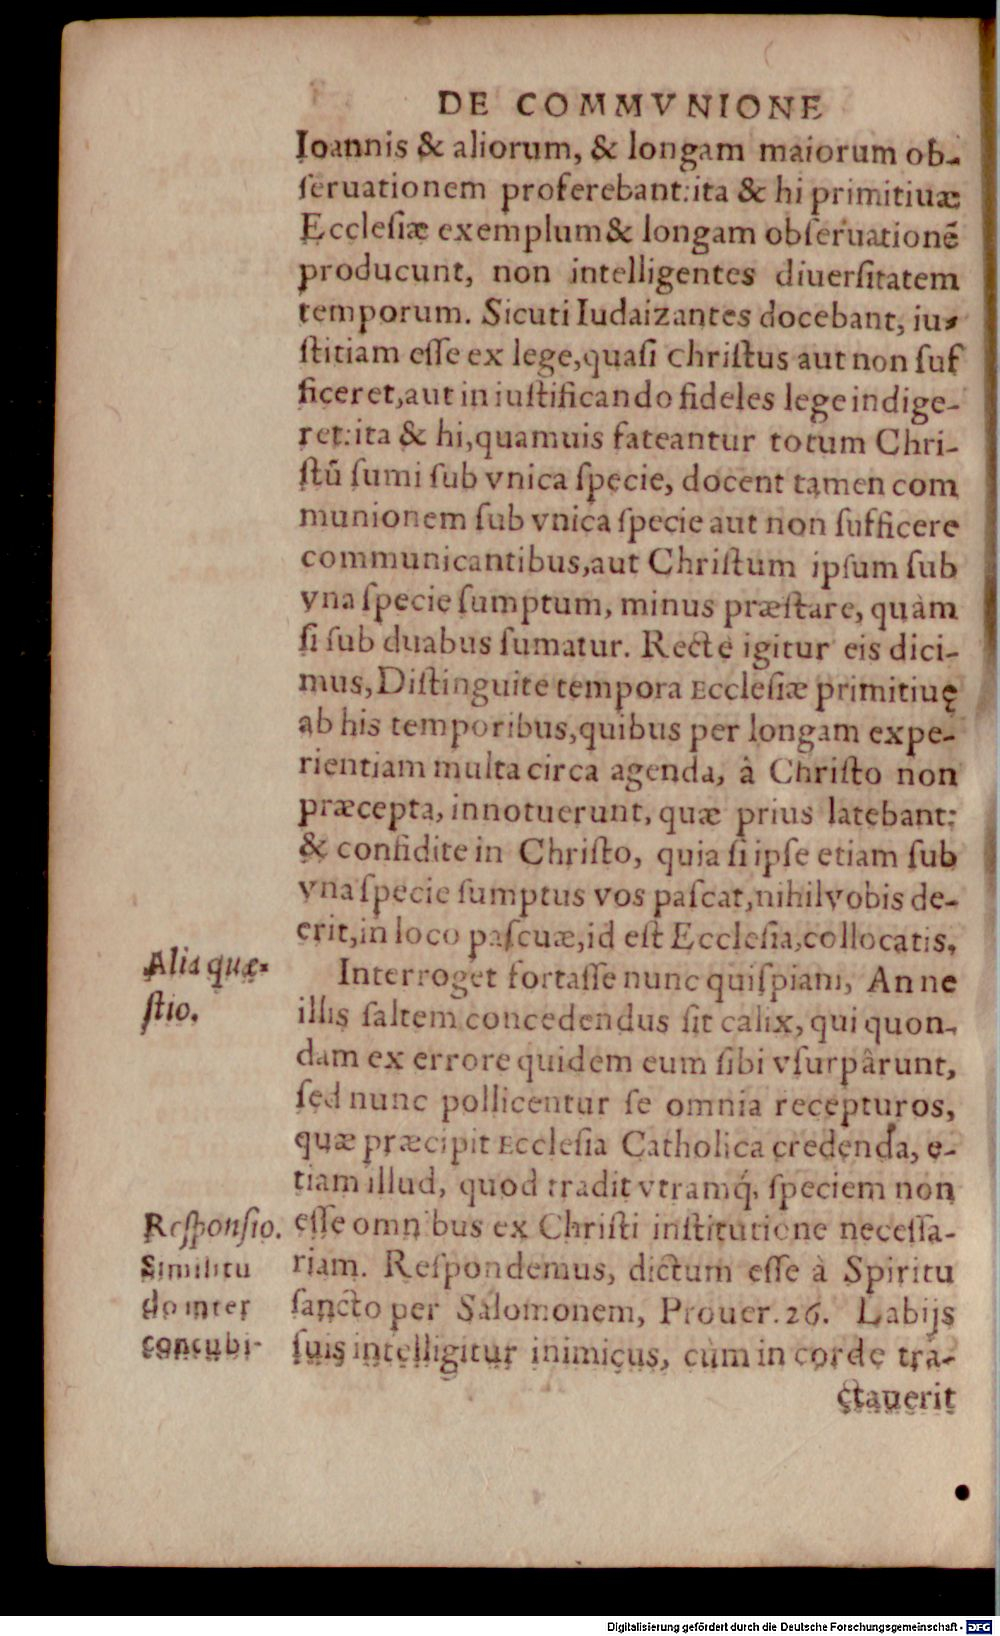 DE COMMVNIONE
Ioannis & aliorum, & longam maiorum ob-
ſeruationem proferebant: ita & hi primitiuæ
Eccleſiæ exemplum & longam obſeruationē
producunt, non intelligentes diuerſitatem
temporum. Sicuti Iudaizantes docebant, iu-
ſtitiam eſſe ex lege, quaſi chriſtus aut non ſuf
ficeret, aut in iuſtificando fideles lege indige-
ret: ita & hi, quamuis fateantur totum Chri-
ſtū ſumi ſub vnica ſpecie, docent tamen com
munionem ſub vnica ſpecie aut non ſufficere
communicantibus, aut Chriſtum ipſum ſub
vna ſpecie ſumptum, minus præſtare, quàm
ſi ſub duabus ſumatur. Rectè igitur eis dici-
mus, Diſtinguite tempora Eccleſiæ primitiuę
ab his temporibus, quibus per longam expe-
rientiam multa circa agenda, à Chriſto non
præcepta, innotuerunt, quæ prius latebant:
& confidite in Chriſto, quia ſi ipſe etiam ſub
vna ſpecie ſumptus vos paſcat, nihil vobis de-
erit, in loco paſcuæ, id eſt Eccleſia, collocatis.
Alia quæ-
ſtio.
Interroget fortaſſe nunc quiſpiam, An ne
illis ſaltem concedendus ſit calix, qui quon-
dam ex errore quidem eum ſibi vſurpârunt,
ſed nunc pollicentur ſe omnia recepturos,
quæ præcipit Eccleſia Catholica credenda, e-
tiam illud, quod tradit vtramq́; ſpeciem non
Reſponſio.
eſſe omnibus ex Chriſti inſtitutione neceſſa-
Similitu
do inter
concubi-
riam. Reſpondemus, dictum eſſe à Spiritu
ſancto per Salomonem, Prouer. 26. Labijs
ſuis intelligitur inimicus, cùm in corde tra-
ctauerit
Digitalisierung gefördert durch die Deutsche Forschungsgemeinschaft - DFG